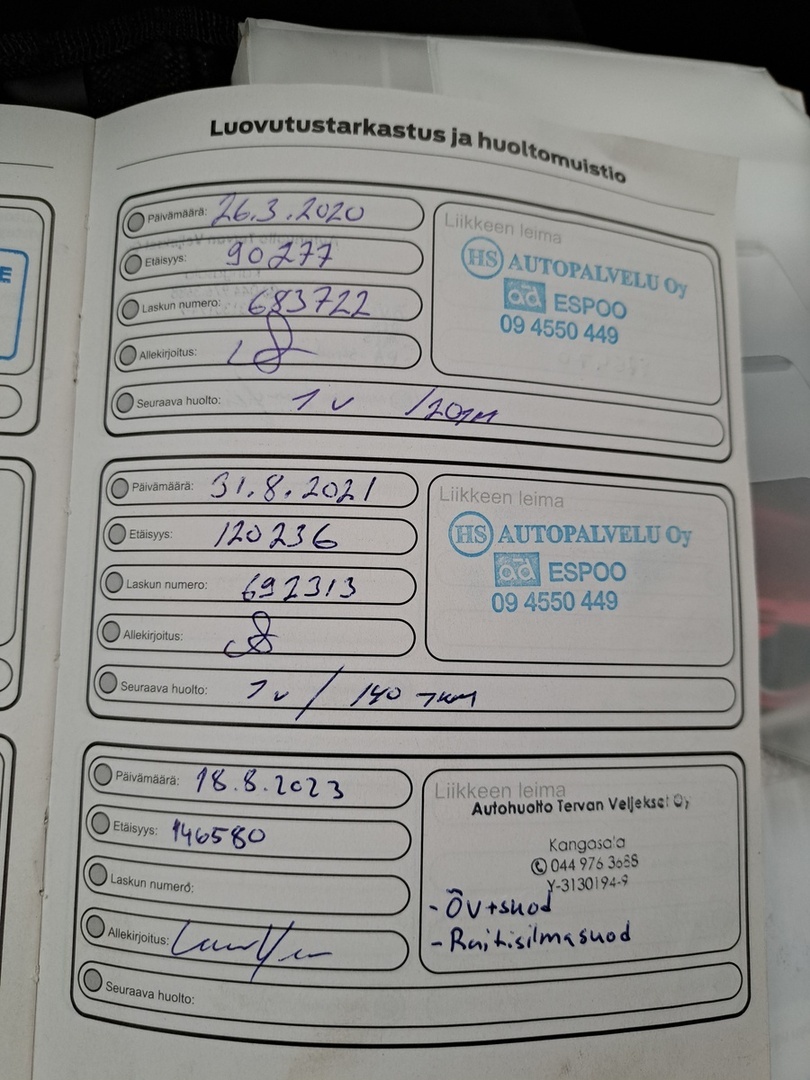 Luovutustarkastus ja huoltomuistio
Päivämäärä: 26.3.2020
Etäisyys: 90277
Laskun numero: 683722
Allekirjoitus:
Seuraava huolto: 1 v /20TKM
Liikkeen leima
HS AUTOPALVELU Oy
ad ESPOO
09 4550 449
Päivämäärä: 31.8.2021
Etäisyys: 120236
Laskun numero: 692313
Allekirjoitus:
Seuraava huolto: 1v / 140 TKM
Liikkeen leima
HS AUTOPALVELU Oy
ad ESPOO
09 4550 449
Päivämäärä: 18.8.2023
Etäisyys: 146580
Laskun numero:
Allekirjoitus:
Seuraava huolto:
Liikkeen leima
Autohuolto Tervan Veljekset Oy
Kangasala
044 976 3688
Y-3130194-9
- ÖV+suod
- Raitisilmasuod
E